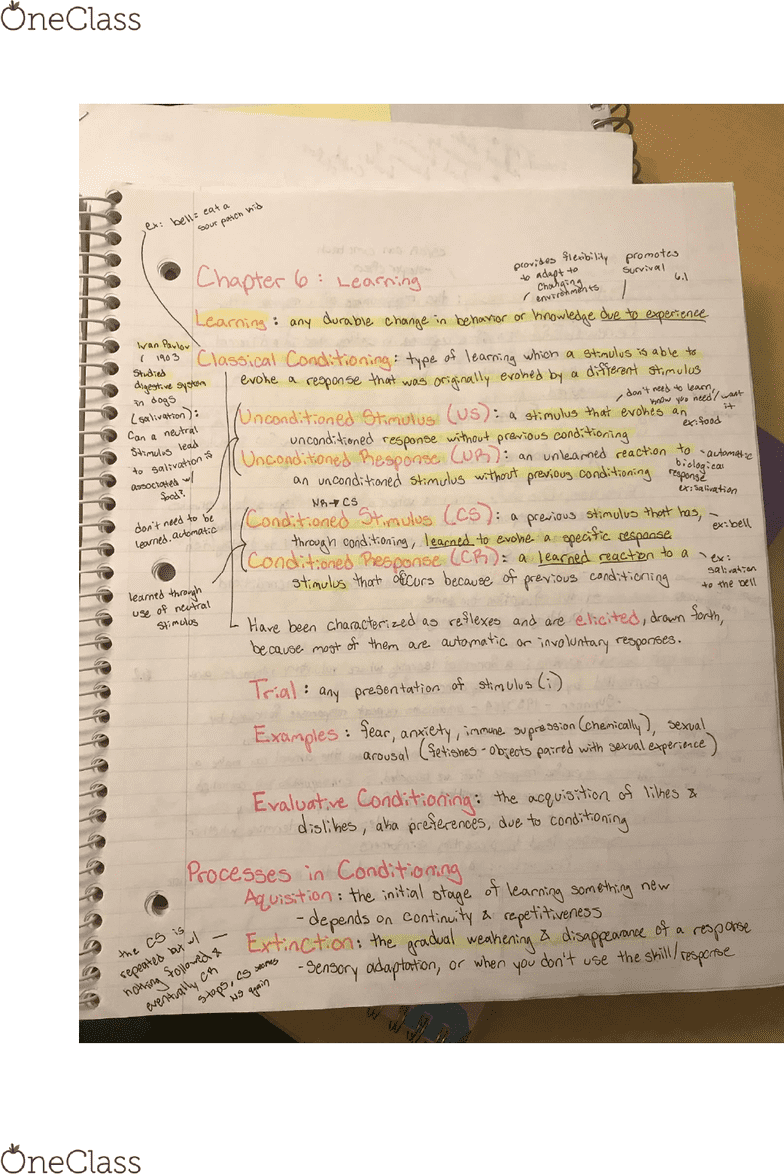 OneClass
ex: bell= eat a
sour patch kid
provides flexibility
to adapt to
changing
environments
promotes
survival
6.1
Chapter 6: Learning
Learning: any durable change in behavior or knowledge due to experience
Ivan Pavlov
1903
Studied
digestive system
in dogs
(salivation):
Can a neutral
stimulus lead
to salivation is
associated w/
food?
Classical Conditioning: type of learning which a stimulus is able to
evoke a response that was originally evoked by a different stimulus
don't need to learn,
know you need/want
it
Unconditioned Stimulus (US): a stimulus that evokes an
ex: food
unconditioned response without previous conditioning
Unconditioned Response (UR): an unlearned reaction to
an unconditioned stimulus without previous conditioning
- automatic
biological
response
ex: salivation
don't need to be
learned, automatic
NS → CS
Conditioned Stimulus (CS): a previous stimulus that has,
through conditioning, learned to evoke a specific response
- ex: bell
Conditioned Response (CR): a learned reaction to a
stimulus that occurs because of previous conditioning
ex:
salivation
to the bell
learned through
use of neutral
stimulus
Have been characterized as reflexes and are elicited, drawn forth,
because most of them are automatic or involuntary responses.
Trial: any presentation of stimulus (i)
Examples: fear, anxiety, immune supression (chemically), sexual
arousal (fetishes - objects paired with sexual experience)
Evaluative Conditioning: the acquisition of likes &
dislikes, aka preferences, due to conditioning
Processes in Conditioning
Aquisition: the initial stage of learning something new
- depends on continuity & repetitiveness
Extinction: the gradual weakening & disappearance of a response
- Sensory adaptation, or when you don't use the skill/response
the CS is
repeated but w/
nothing followed &
eventually CR
stops, CS
NS again
OneClass